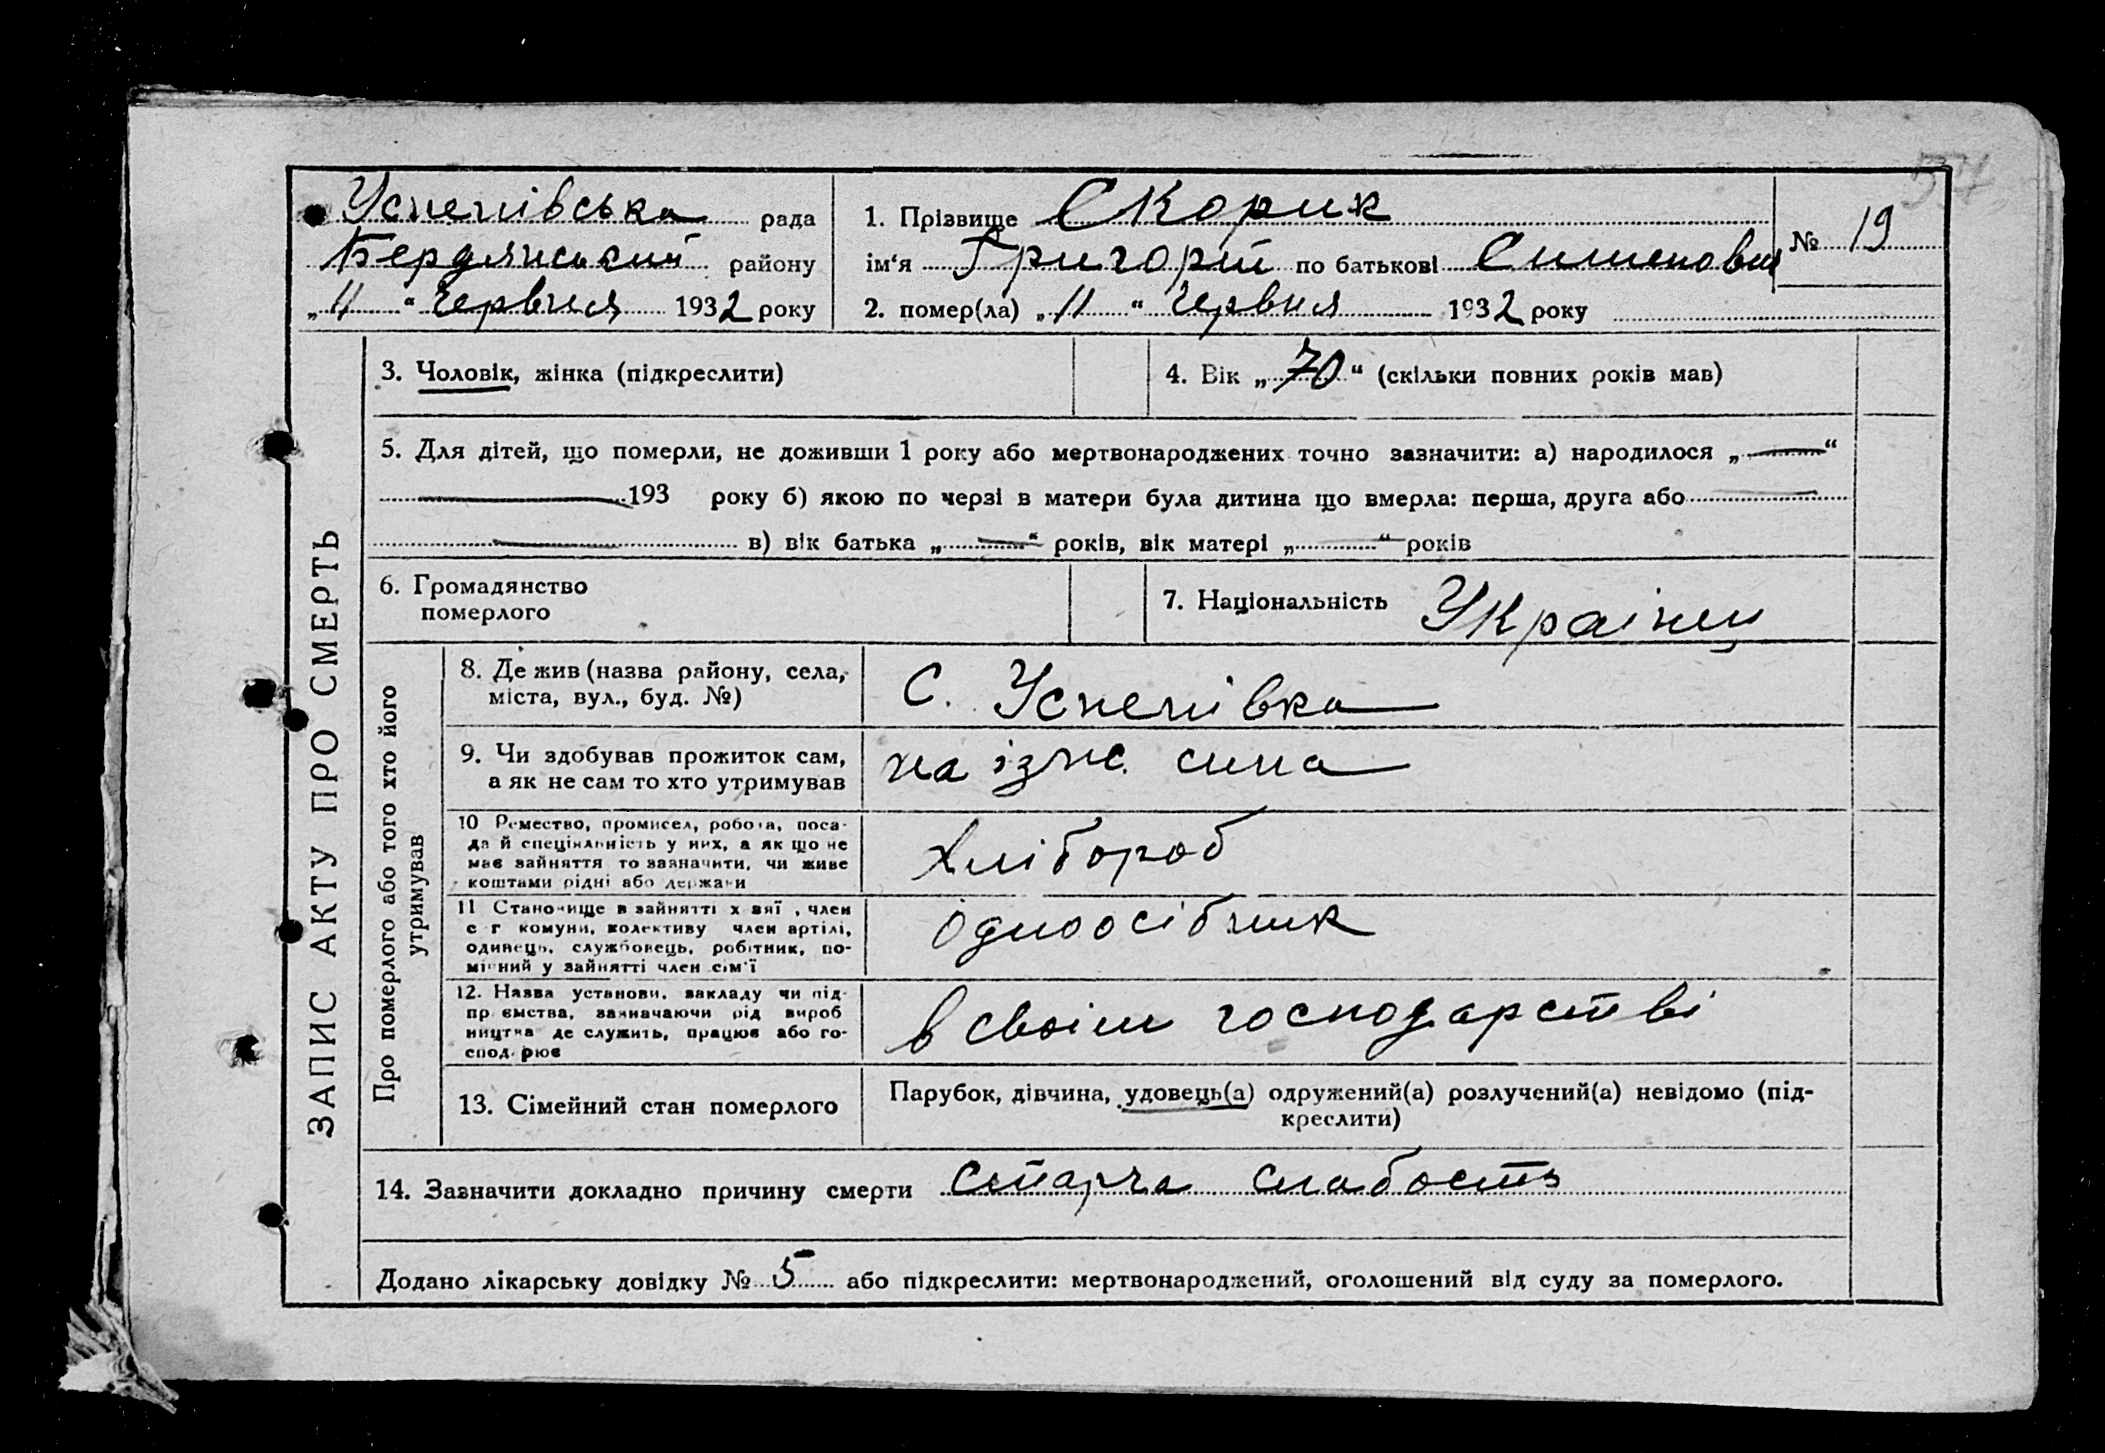 Успенівська рада
Бердянський району
„11“ Червня 1932 року
1. Прізвище Скорик
ім'я Григорій по батькові
№ 19
2. помер(ла) „11“ Червня 1932 року
ЗАПИС АКТУ ПРО СМЕРТЬ
3. Чоловік, жінка (підкреслити)
4. Вік „70“ (скільки повних років мав)
5. Для дітей, що померли, не доживши 1 року або мертвонароджених точно зазначити: а) народилося „—“
193 року б) якою по черзі в матери була дитина що вмерла: перша, друга або
в) вік батька „—“ років, вік матері „—“ років
6. Громадянство
померлого
7. Національність Українец
Про померлого або того хто його
утримував
8. Де жив (назва району, села,
міста, вул., буд. №)
С. Успенівка
9. Чи здобував прожиток сам,
а як не сам то хто утримував
на ізд. сина
10 Ремество, промисел, робота, поса-
да й спеціяльність у них, а як що не
має зайняття то зазначити, чи живе
коштами рідні або держави
Хлібороб
11 Становище в зайнятті х зяї , член
с г комуни, колективу член артілі,
одинець, службовець, робітник, по-
мічний у зайнятті член сім'ї
одноосібник
12. Назва установи, закладу чи під-
пр ємства, зазначаючи рід вироб
ництва де служить, працює або го-
спод рює
в своїм господарстві
13. Сімейний стан померлого
Парубок, дівчина, удовець(а) одружений(а) розлучений(а) невідомо (під-
креслити)
14. Зазначити докладно причину смерти старча слабость
Додано лікарську довідку № 5 або підкреслити: мертвонароджений, оголошений від суду за померлого.